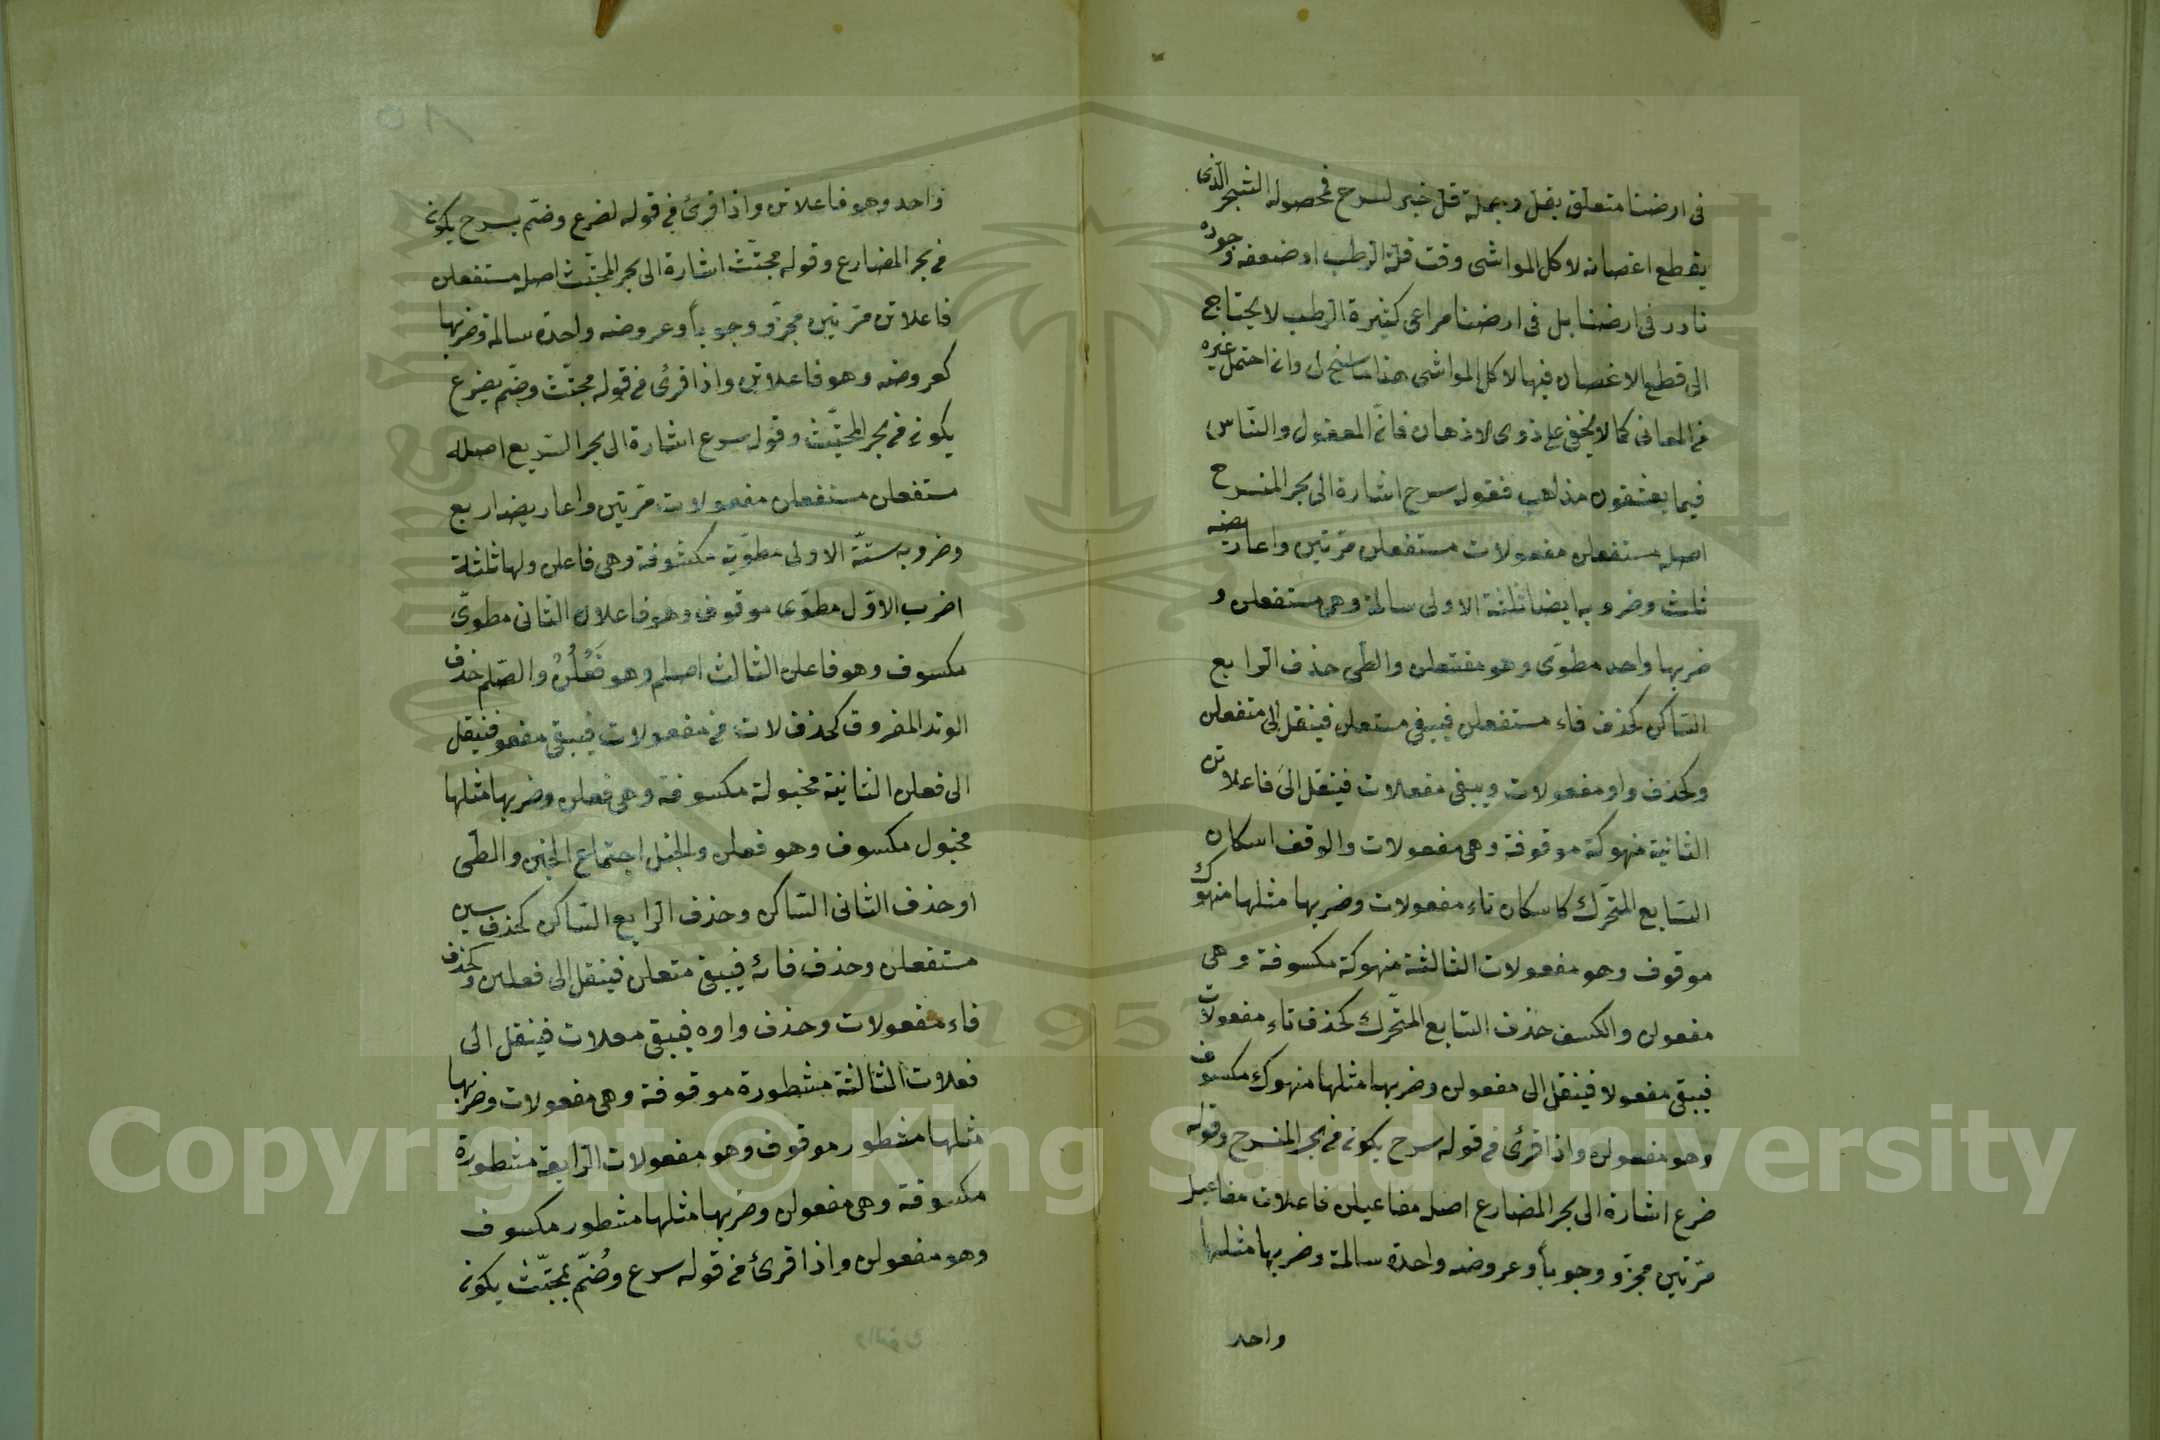 فى ارضنا متعلق بقل وجملة قل خبر لسرح فحصوله الشجر الذى
يقطع اغصانه لاكل المواشى وقت قلة الرطب او ضعفه وجوده
نادر فى ارضنا بل فى ارضنا مراعى كثيرة الرطب لا يحتاج
الى قطع الاغصان فيها لاكل المواشى هذا ما سنح لى وان احتمل غيره
فى المعانى كما لا يخفى على ذوى الاذهان فانّ المعقول والنّاس
فيما يعشقون مذاهب فقوله سرح اشارة الى بحر المنسرح
اصله مستفعلن مفعولات مستفعلن مرّتين واعاريضه
ثلث وضروبه ايضا ثلثة الاولى سالمة وهى مستفعلن و
ضربها واحد مطوّى وهو مفتعلن والطّى حذف الرّابع
السّاكن كحذف فاء مستفعلن فيبقى مستعلن فينقل الى متفعلن
وكحذف واو مفعولات ويبقى مفعلات فينقل الى فاعلاتن
الثانية منهوكة موقوفة وهى مفعولات والوقف اسكان
السّابع المتحرّك كاسكان تاء مفعولات وضربها مثلها منهوك
موقوف وهو مفعولات الثالثة منهوكة مكسوفة وهى
مفعولن والكسف حذف السّابع المتحرّك كحذف تاء مفعولات
فيبقى مفعولا فينقل الى مفعولن وضربها مثلها منهوك مكسوف
وهو مفعولن واذا قرئ فى قوله سرح يكون فى بحر المنسرح وقوله
ضرع اشارة الى بحر المضارع اصله مفاعيلن فاعلات مفاعيل
مرّتين مجزو وجوباً وعروضه واحدة سالمة وضربها مثلها
واحد
واحد وهو فاعلاتن واذا قرئ فى قوله لضرع وضمّ بسرح يكون
فى بحر المضارع وقوله مجتّث اشارة الى بحر المجتّث اصله مستفعلن
فاعلاتن مرّتين مجزو وجوباً وعروضه واحدة سالمة وضربها
كعروضه وهو فاعلاتن واذا قرئ فى قوله مجتّث وضمّ بضرع
يكون فى بحر المجتّث وقوله سرع اشارة الى بحر السّريع اصله
مستفعلن مستفعلن مفعولات مرّتين واعاريضه اربع
وضروبه ستّة الاولى مطويّة مكشوفة وهى فاعلن ولها ثلثة
اضرب الاوّل مطوّى موقوف وهو فاعلان الثانى مطوىّ
مكسوف وهو فاعلن الثالث اصلم وهو فَعْلُنْ والصّلم حذف
الوتد المفروق كحذف لات فى مفعولات فيبقى مفعو فينقل
الى فعلن الثانية مخبولة مكسوفة وهى فعلن وضربها مثلها
مخبول مكسوف وهو فعلن والخبل اجتماع الخبن والطّى
اوحذف الثانى السّاكن وحذف الرّابع السّاكن كحذف سين
مستفعلن وحذف فائه فيبقى متعلن فينقل الى فعلتن وكحذف
فاء مفعولات وحذف واوه فيبقى معلات فينقل الى
فعلات الثالثة مشطورة موقوفة وهى مفعولات وضربها
مثلها مشطور موقوف وهو مفعولات الرّابعة مشطورة
مكسوفة وهى مفعولن وضربها مثلها مشطور مكسوف
وهو مفعولن واذا قرئ فى قوله سرع وضُمّ بمجتّث يكون
Copyright © King Saud University